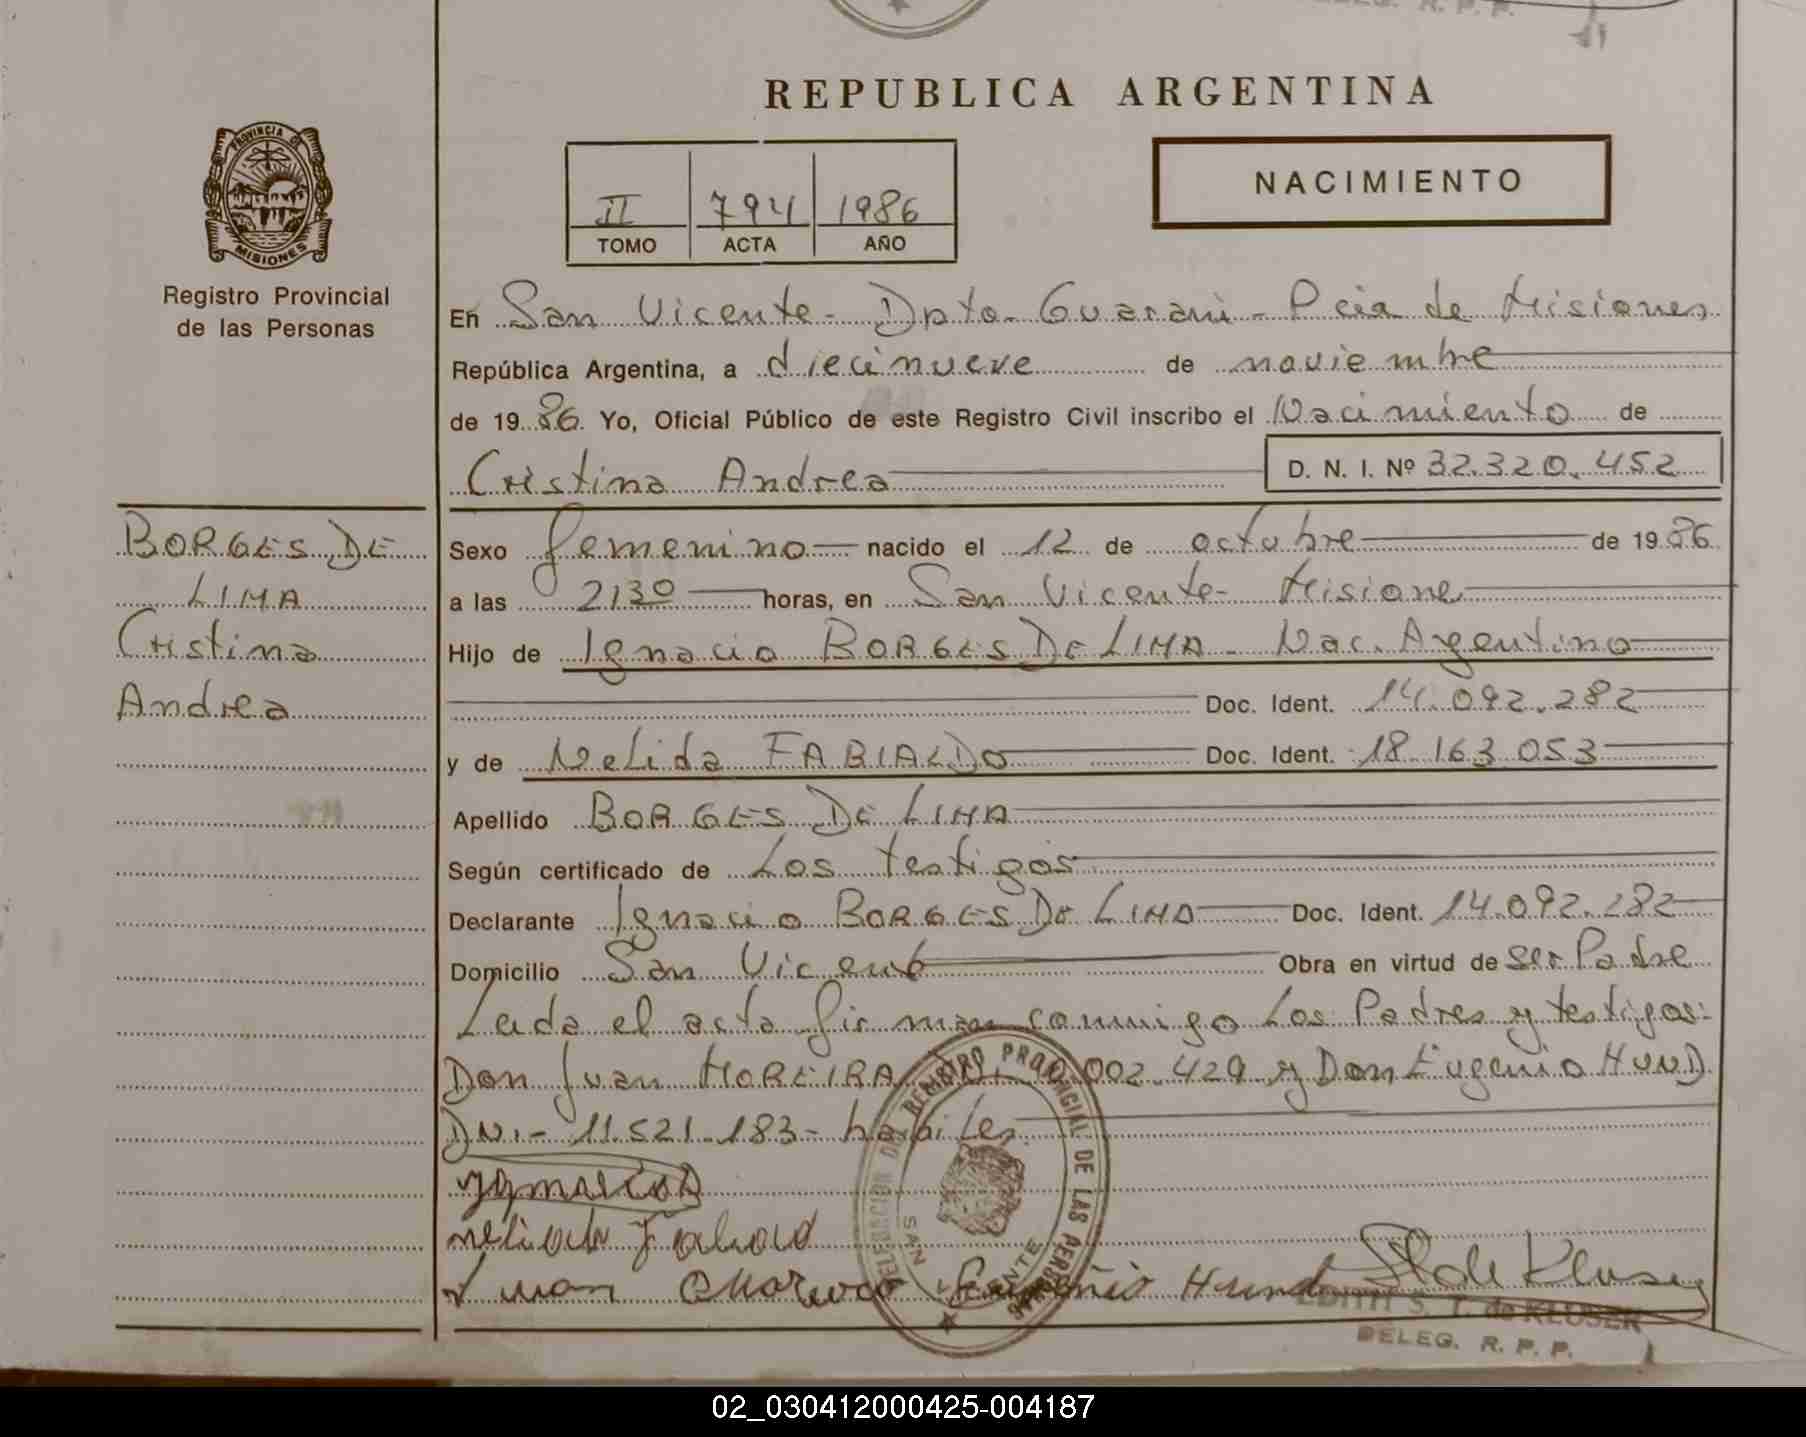 DELEG. R. P. P.
REPUBLICA ARGENTINA
PROVINCIA DE
MISIONES
Registro Provincial
de las Personas
II 794 1986
TOMO ACTA AÑO
NACIMIENTO
En San Vicente - Dpto. Guarani - Pcia de Misiones
República Argentina, a diecinueve de noviembre
de 1986 Yo, Oficial Público de este Registro Civil inscribo el Nacimiento de
Cristina Andrea D. N. I. Nº 32.320.452
BORGES DE
LIMA
Cristina
Andrea
Sexo femenino nacido el 12 de octubre de 1986
a las 2130 horas, en San Vicente - Misione
Hijo de Ignacio BORGES DE LIMA - Nac. Argentino
Doc. Ident. 14.092.282
y de Nelida FABIALDO Doc. Ident. 18.163.053
Apellido BORGES DE LIMA
Según certificado de Los testigos
Declarante Ignacio BORGES DE LIMA Doc. Ident. 14.092.282
Domicilio San Vicente Obra en virtud de ser Padre
Leida el acta firman conmigo Los Padres y testigos:
Don Juan MOREIRA 002.429 y Don Eugenio HUND
DNI.- 11.521.183 - habiles
Juan Eugenio Hund
DELEGACION DEL REGISTRO PROVINCIAL DE LAS PERSONAS
SAN VICENTE
EDITH S. T. de KLUSER
DELEG. R. P. P.
02_030412000425-004187